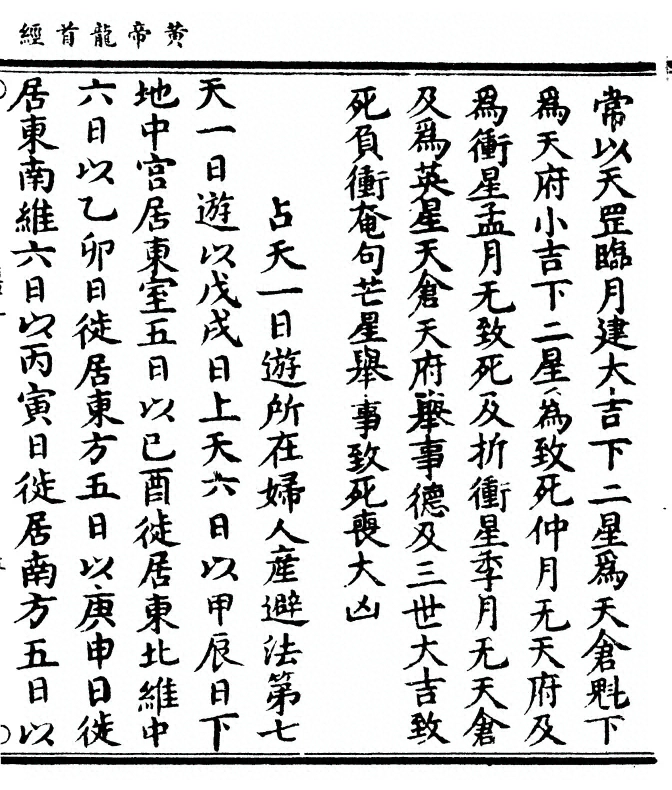 黃帝龍首經
常以天罡臨月建大吉下二星爲天倉魁下
爲天府小吉下二星爲致死仲月无天府及
爲衝星孟月无致死及折衝星季月无天倉
及爲英星天倉天府舉事德及三世大吉致
死負衝奄句芒星舉事致死喪大凶
占天一日遊所在婦人產避法第七
天一日遊以戊戌日上天六日以甲辰日下
地中宮居東室五日以己酉徙居東北維中
六日以乙卯日徙居東方五日以庚申日徙
居東南維六日以丙寅日徙居南方五日以